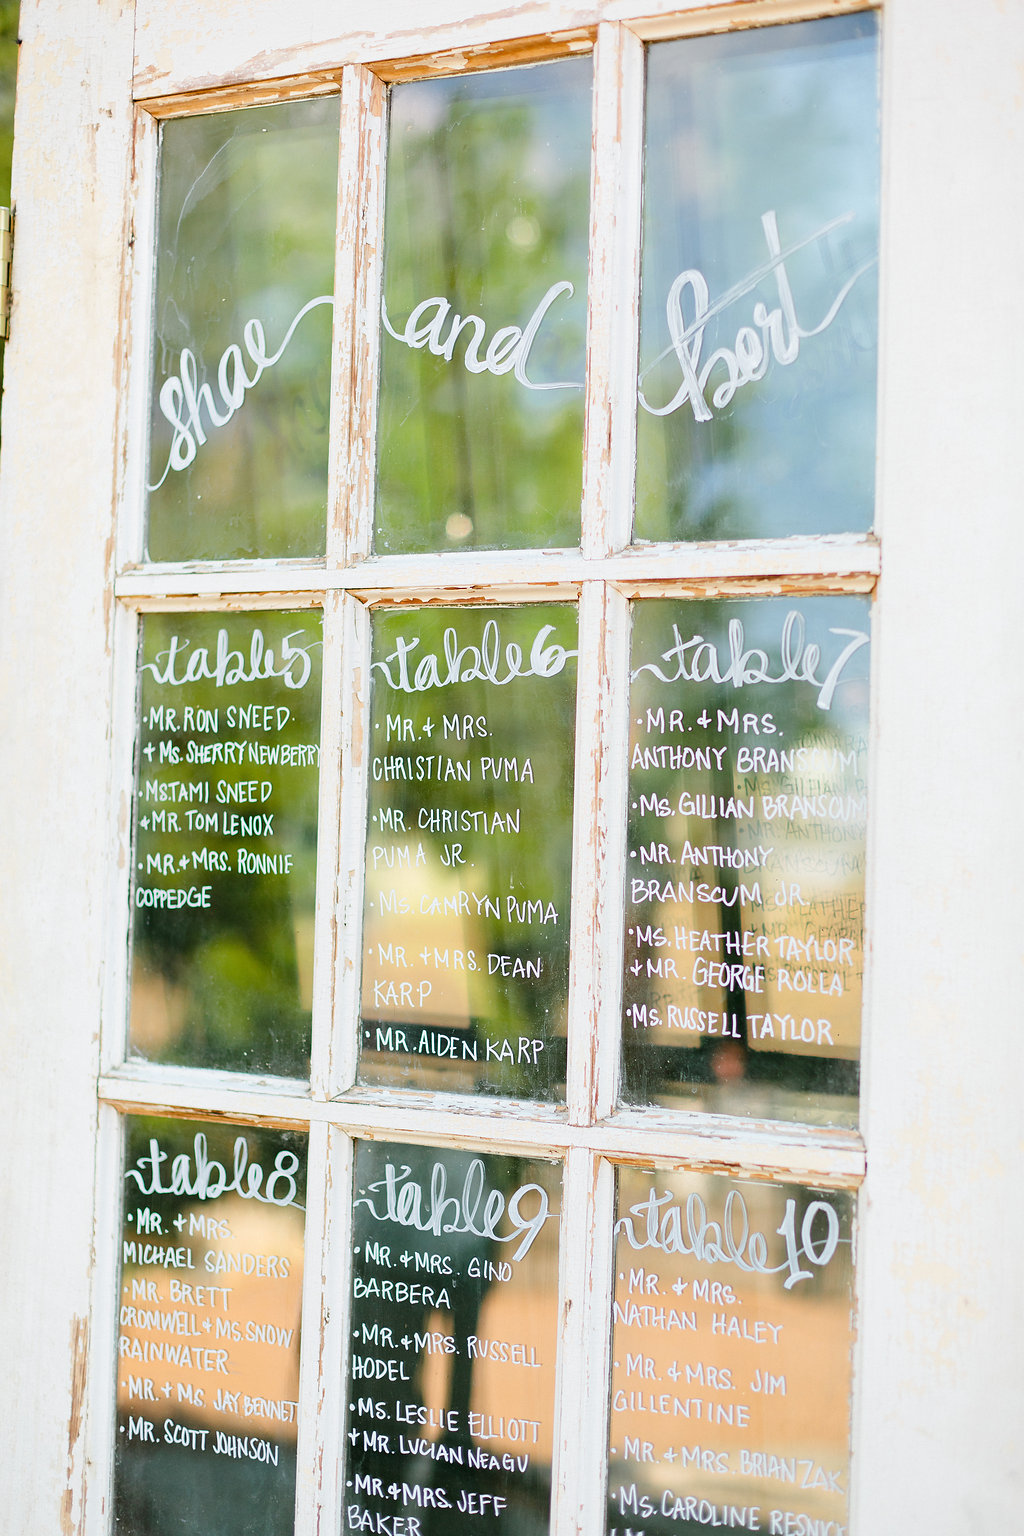 shae and bert
table 5
• MR. RON SNEED
+ MS. SHERRY NEWBERRY
• MS. TAMI SNEED
+ MR. TOM LENOX
• MR. + MRS. RONNIE
COPPEDGE
table 6
• MR. + MRS.
CHRISTIAN PUMA
• MR. CHRISTIAN
PUMA JR.
• MS. CAMRYN PUMA
• MR. + MRS. DEAN
KARP
• MR. AIDEN KARP
table 7
• MR. + MRS.
ANTHONY BRANSCUM
• MS. GILLIAN BRANSCUM
• MR. ANTHONY
BRANSCUM JR.
• MS. HEATHER TAYLOR
+ MR. GEORGE ROLLA
• MS. RUSSELL TAYLOR
table 8
• MR. + MRS.
MICHAEL SANDERS
• MR. BRETT
CROMWELL + MS. SNOW
RAINWATER
• MR. + MS. JAY BENNETT
• MR. SCOTT JOHNSON
table 9
• MR. + MRS. GINO
BARBERA
• MR. + MRS. RUSSELL
HODEL
• MS. LESLIE ELLIOTT
+ MR. LUCIAN NEAGU
• MR. + MRS. JEFF
BAKER
table 10
• MR. + MRS.
NATHAN HALEY
• MR. + MRS. JIM
GILLENTINE
• MR. + MRS. BRIAN ZAK
• MS. CAROLINE RESNICK